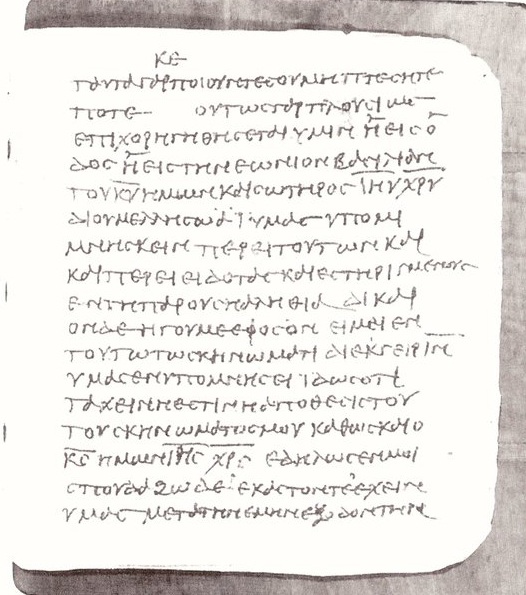 ΚΕ
ΤΑΥΤΑ ΓΑΡ ΠΟΙΟΥΝΤΕΣ ΟΥ ΜΗ ΠΤΕΣΗΤΕ
ΠΟΤΕ ΟΥΤΩΣ ΓΑΡ ΠΛΟΥΣΙΩΣ
ΕΠΙΧΟΡΗΓΗΘΗΣΕΤΑΙ ΥΜΙΝ Η ΕΙΣΟ
ΔΟΣ Η ΕΙΣ ΤΗΝ ΕΩΝΙΟΝ ΒΑΣΙΛΙΑΝ
ΤΟΥ ΚΥ ΗΜΩΝ ΚΑΙ ΣΩΤΗΡΟΣ ΙΗΥ ΧΡΥ
ΔΙΟ ΥΜΕΛΛΗΣΩ ΑΙ ΥΜΑΣ ΥΠΟΜΙ
ΜΝΗΣΚΕΙΝ ΠΕΡΕΙ ΤΟΥΤΩΝ ΚΑΙ
ΚΑΙ ΠΕΡ ΕΙΕΙΔΟΤΑΣ ΚΑΙ ΕΣΤΗΡΙΓΜΕΝΟΥΣ
ΕΝ ΤΗ ΠΑΡΟΥΣΗ ΑΛΗΘΙΑ ΔΙΚΑΙ
ΟΝ ΔΕ ΗΓΟΥΜΕ ΕΦ ΟΣΟΝ ΕΙΜΕΙ ΕΝ
ΤΟΥΤΩ ΤΩ ΣΚΗΝΩΜΑΤΙ ΔΙΕΓΕΙΡΙΝ
ΥΜΑΣ ΕΝ ΥΠΟΜΝΗΣΕΙ ΙΔΩΣ ΟΤΙ
ΤΑΧΕΙΝΗ ΕΣΤΙΝ Η ΑΠΟΘΕΣΙΣ ΤΟΥ
ΤΟΥ ΣΚΗΝΩΜΑΤΟΣ ΜΟΥ ΚΑΘΩΣ ΚΑΙ Ο
ΚΣ ΗΜΩΝ ΙΗΣ ΧΡΣ ΕΔΗΛΩΣΕΝ ΜΟΙ
ΣΠΟΥΔΑΖΩ ΔΕ ΕΚΑΣΤΟΤΕ ΕΧΕΙΝ
ΥΜΑΣ ΜΕΤΑ ΤΗΝ ΕΜΗΝ ΕΞΟΔΟΝ ΤΗΝ